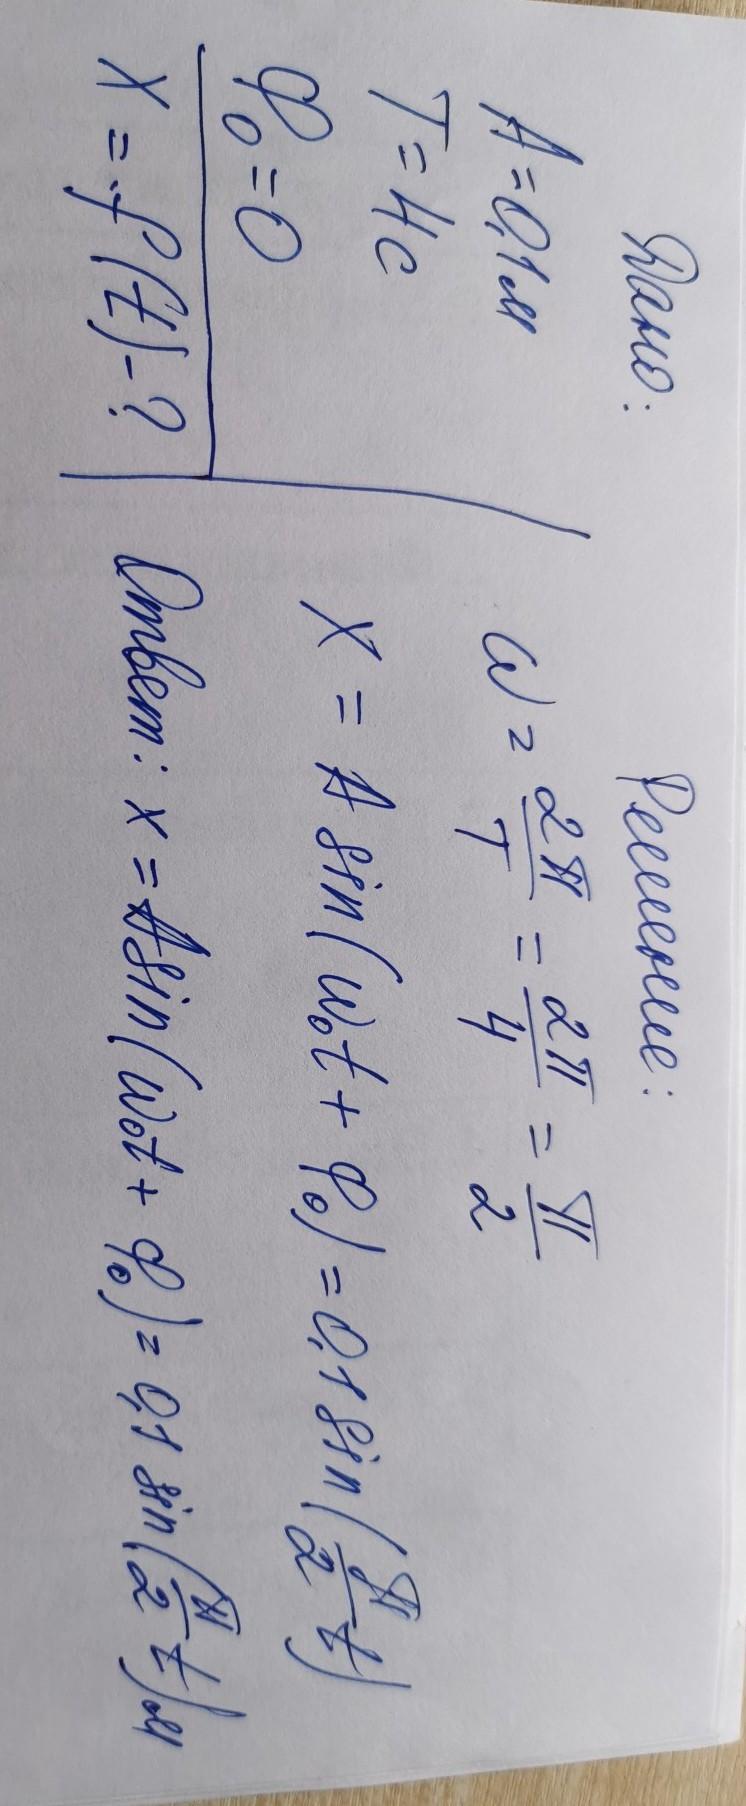 Дано:
A = 0,1 м
T = 4 с
φ₀ = 0
X = f(t) - ?
Решение:
ω = 2π/T = 2π/4 = π/2
X = A sin(ω₀t + φ₀) = 0,1 sin(π/2 t)
Ответ: x = A sin(ω₀t + φ₀) = 0,1 sin(π/2 t) м